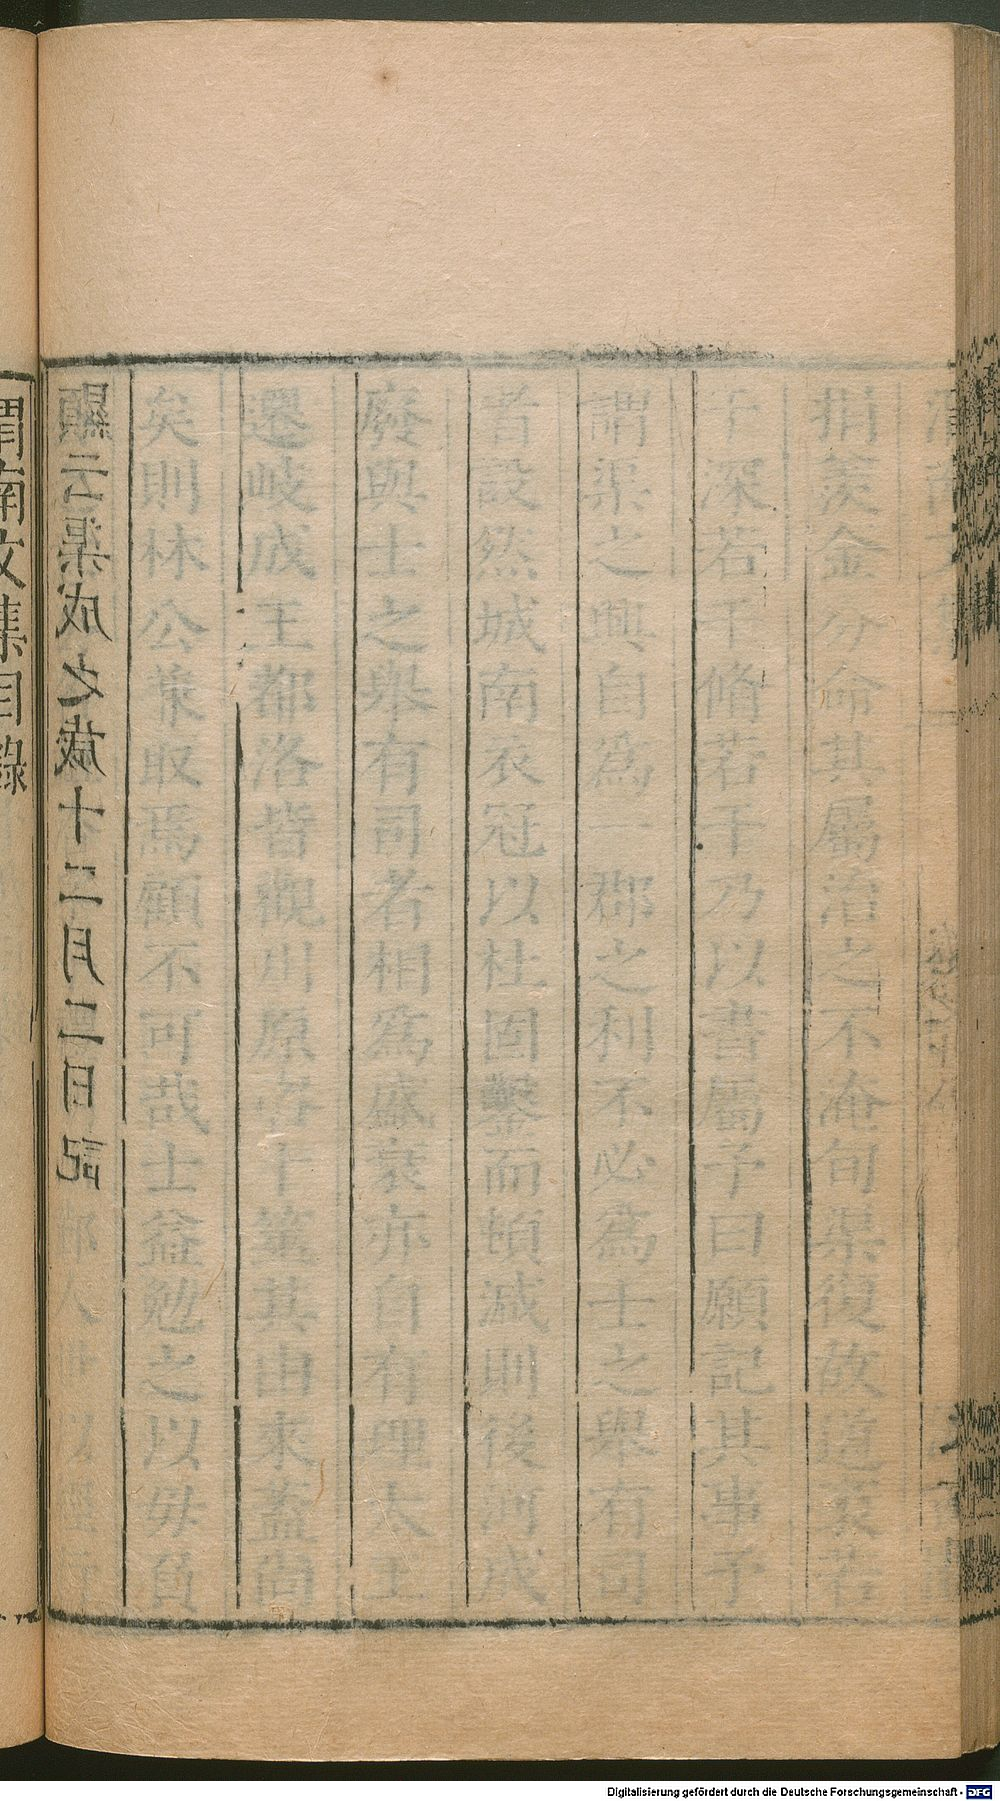 捐羨金分命其屬治之不淹旬渠復故道袤若
干深若干脩若干乃以書屬予曰願記其事予
謂渠之興自爲一郡之利不必爲士之舉有司
者設然城南衣冠以杜固鑿而頓減則後河成
廢與士之舉有司者相爲盛衰亦自有理太王
遷岐成王都洛皆觀川原考卜筮其由來蓋尚
矣則林公兼取焉顧不可哉士益勉之以毋負
顯云渠成之歲十二月二日記
渭南文集目錄
Digitalisierung gefördert durch die Deutsche Forschungsgemeinschaft - DFG